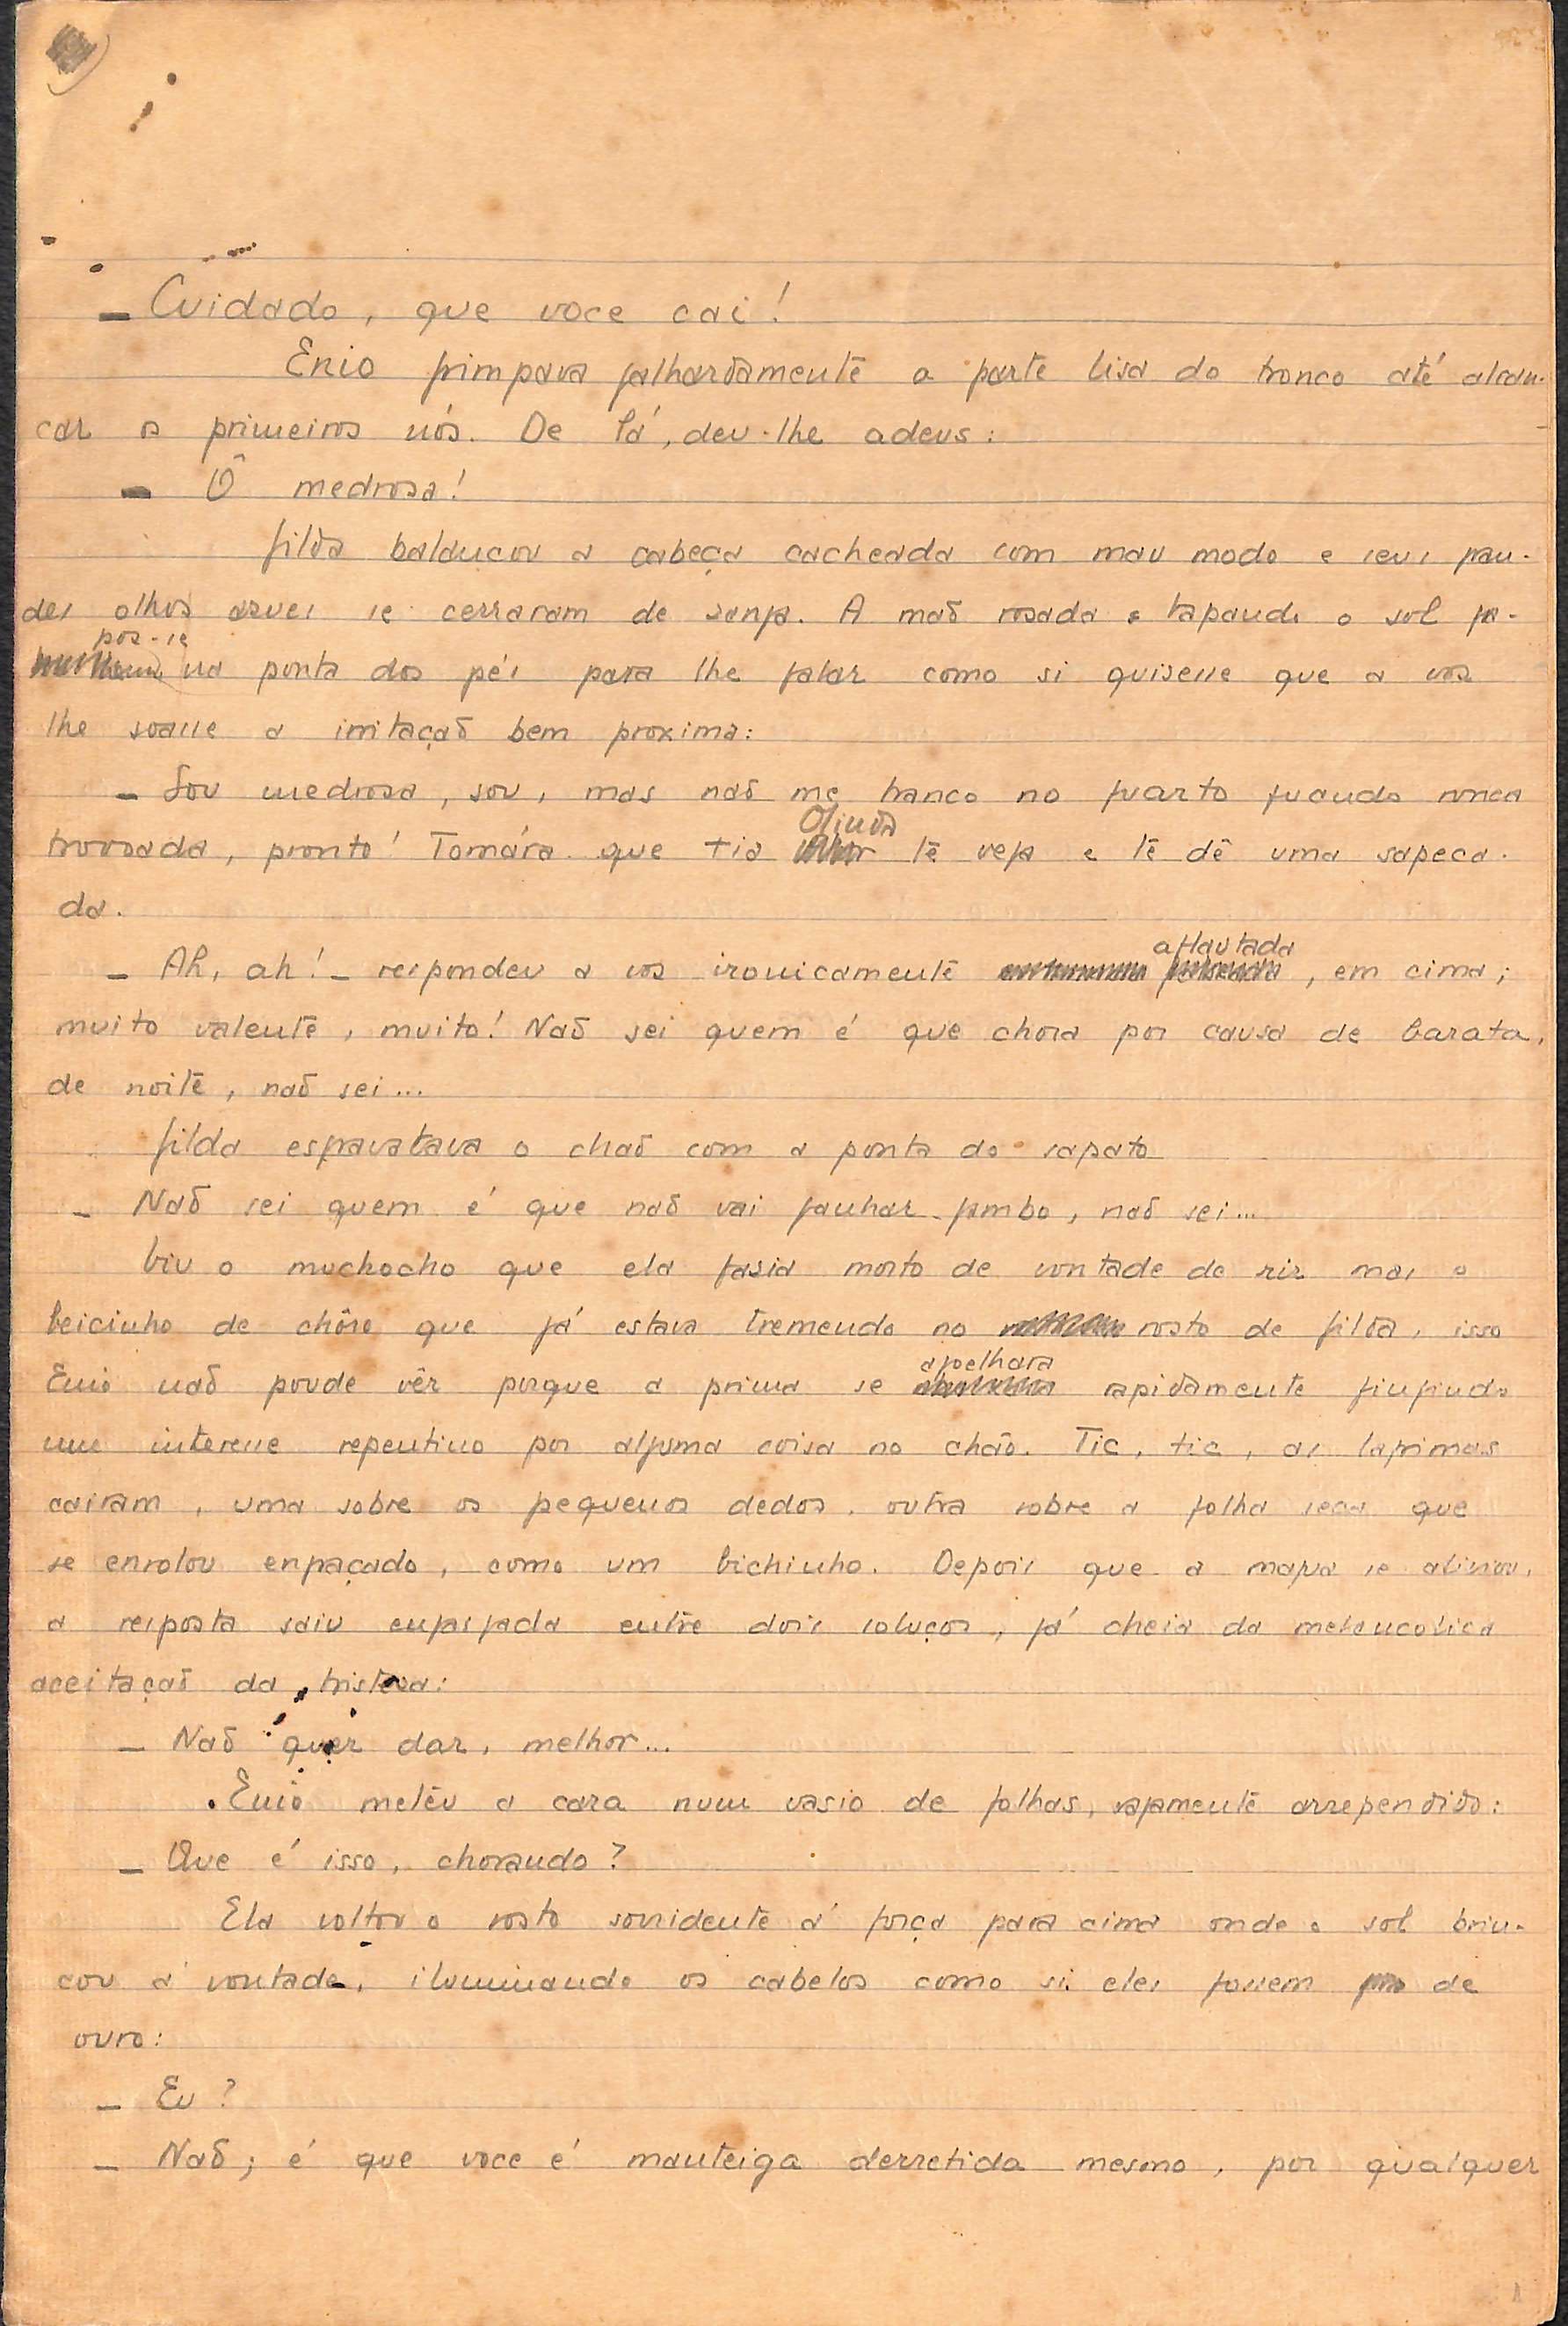 – Cuidado, que voce cai!
Enio grimpava galhardamente a parte lisa do tronco até alcan-
car os primeiros nós. De lá, deu-lhe adeus:
– Ô medrosa!
Gilda balançou a cabeça cacheada com mau modo e seus gran-
des olhos azues se cerraram de zanga. A maõ rosada tapando o sol
pos-se
na ponta dos pés para lhe falar como si quisesse que a voz
lhe soasse a irritaçaõ bem proxima:
– Sou medrosa, sou, mas naõ me tranco no quarto quando ronca
Olinda
trovoada, pronto! Tomára que tia te veja e te dê uma sapeca-
da.
aflautada
– Ah, ah! – respondeu a voz ironicamente , em cima;
muito valente, muito! Naõ sei quem é que chora por causa de barata,
de noite, naõ sei...
Gilda esgravatava o chaõ com a ponta do sapato
– Naõ sei quem é que naõ vai ganhar jambo, naõ sei...
Viu o muchocho que ela fasia morto de vontade de rir mas o
beicinho de chôro que já estava tremendo no rosto de Gilda, isso
ajoelhara
Enio naõ poude vêr porque a prima se rapidamente fingindo
um interesse repentino por alguma coisa no chão. Tic, tic, as lagrimas
cairam, uma sobre os pequenos dedos, outra sobre a folha seca que
se enrolou engaçado, como um bichinho. Depois que a magua se aliviou,
a resposta saiu engasgada entre dois soluços, já cheia da melancolica
aceitaçaõ da tristeza:
– Naõ quer dar, melhor...
Enio meteu a cara num vasio de folhas, vagamente arrependido:
– Que é isso, chorando?
Ela voltou o rosto sorridente á força para cima onde o sol brin-
cou á vontade, iluminando os cabelos como si eles fossem de
ouro:
– Eu?
– Naõ; é que voce é manteiga derretida mesmo, por qualquer
1